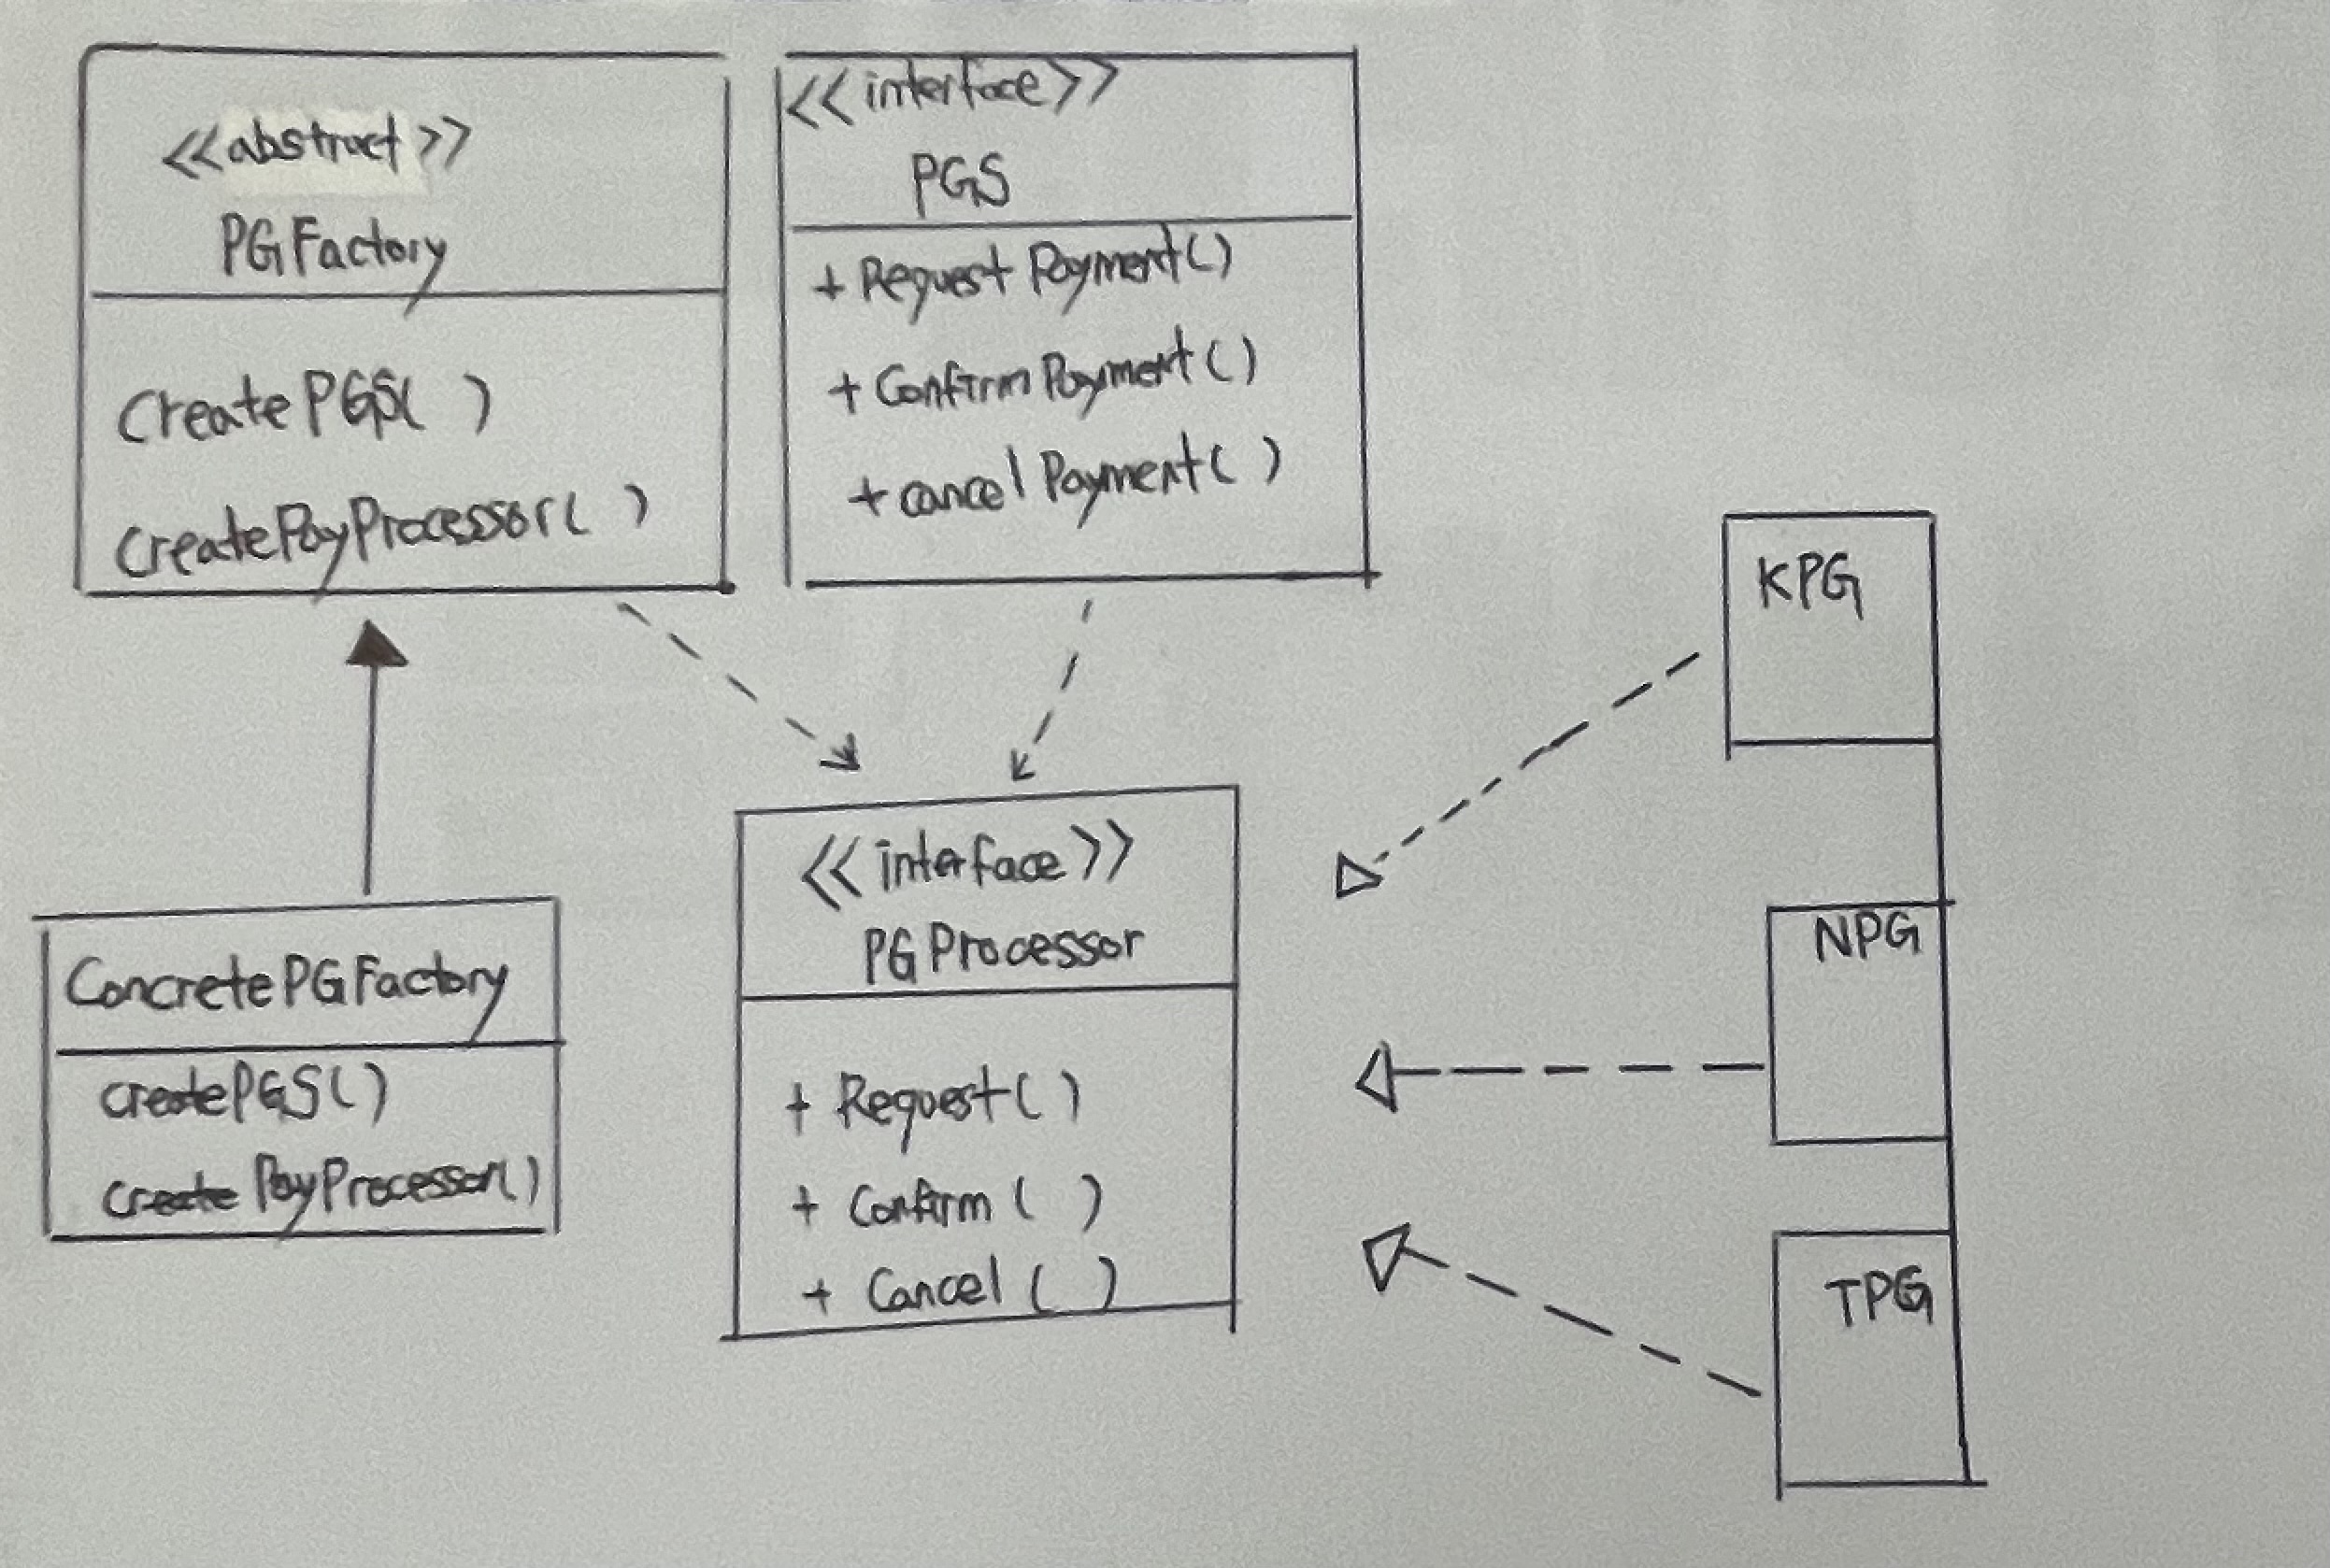 <<abstract>>
PGFactory
CreatePGS( )
CreatePayProcessor( )
<<interface>>
PGS
+ Request Payment()
+ Confirm Payment()
+ cancel Payment( )
ConcretePGFactory
createPGS()
create PayProcessor()
<<interface>>
PGProcessor
+ Request( )
+ Confirm ( )
+ Cancel ( )
KPG
NPG
TPG